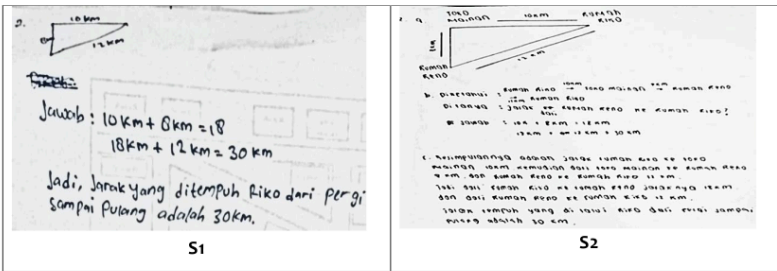 2.
10 km
8
12 km
Jawab : 10 km + 8 km = 18
18 km + 12 km = 30 km
Jadi, Jarak yang ditempuh Riko dari pergi
sampai pulang adalah 30 km.
S1
a.
TOKO MAINAN
10 km
RUMAH RIKO
RUMAH RENO
b. Diketahui : Rumah Riko → Toko mainan → Rumah Reno
Rumah Riko
Ditanya : Jarak dari Rumah Reno ke Rumah Riko?
Jawab
c. Kesimpulannya adalah jarak rumah Riko ke toko
mainan 10 km kemudian dari toko mainan ke rumah Reno
8 km. dan Rumah Reno ke Rumah Riko 12 km.
Jadi dari rumah Riko ke rumah Reno jaraknya 18 km.
dan dari Rumah Reno ke rumah Riko 12 km.
Jarak tempuh yang di lalui Riko dari pergi sampai
pulang adalah 30 km.
S2